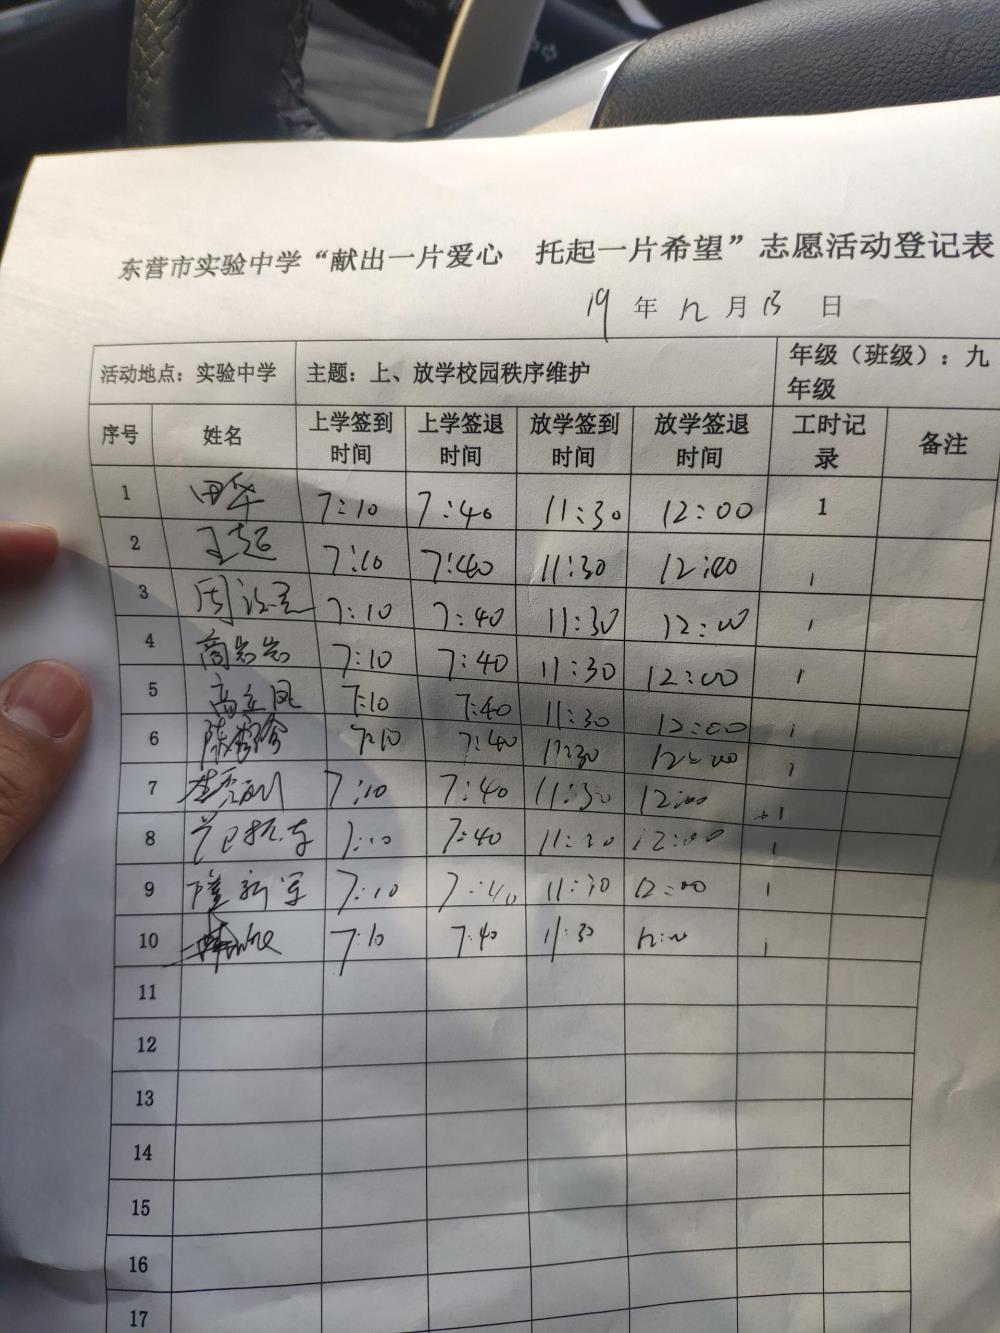 东营市实验中学“献出一片爱心 托起一片希望”志愿活动登记表
19 年 12 月 13 日
活动地点：实验中学 主题：上、放学校园秩序维护 年级（班级）：九年级
序号 姓名 上学签到时间 上学签退时间 放学签到时间 放学签退时间 工时记录 备注
1 田华 7:10 7:40 11:30 12:00 1
2 王超 7:10 7:40 11:30 12:00 1
3 7:10 7:40 11:30 12:00 1
4 商岩岩 7:10 7:40 11:30 12:00 1
5 高立凤 7:10 7:40 11:30 12:00 1
6 7:10 7:40 11:30 12:00 1
7 7:10 7:40 11:30 12:00 1
8 7:10 7:40 11:30 12:00 1
9 隆新军 7:10 7:40 11:30 12:00 1
10 7:10 7:40 11:30 12:00 1
11
12
13
14
15
16
17